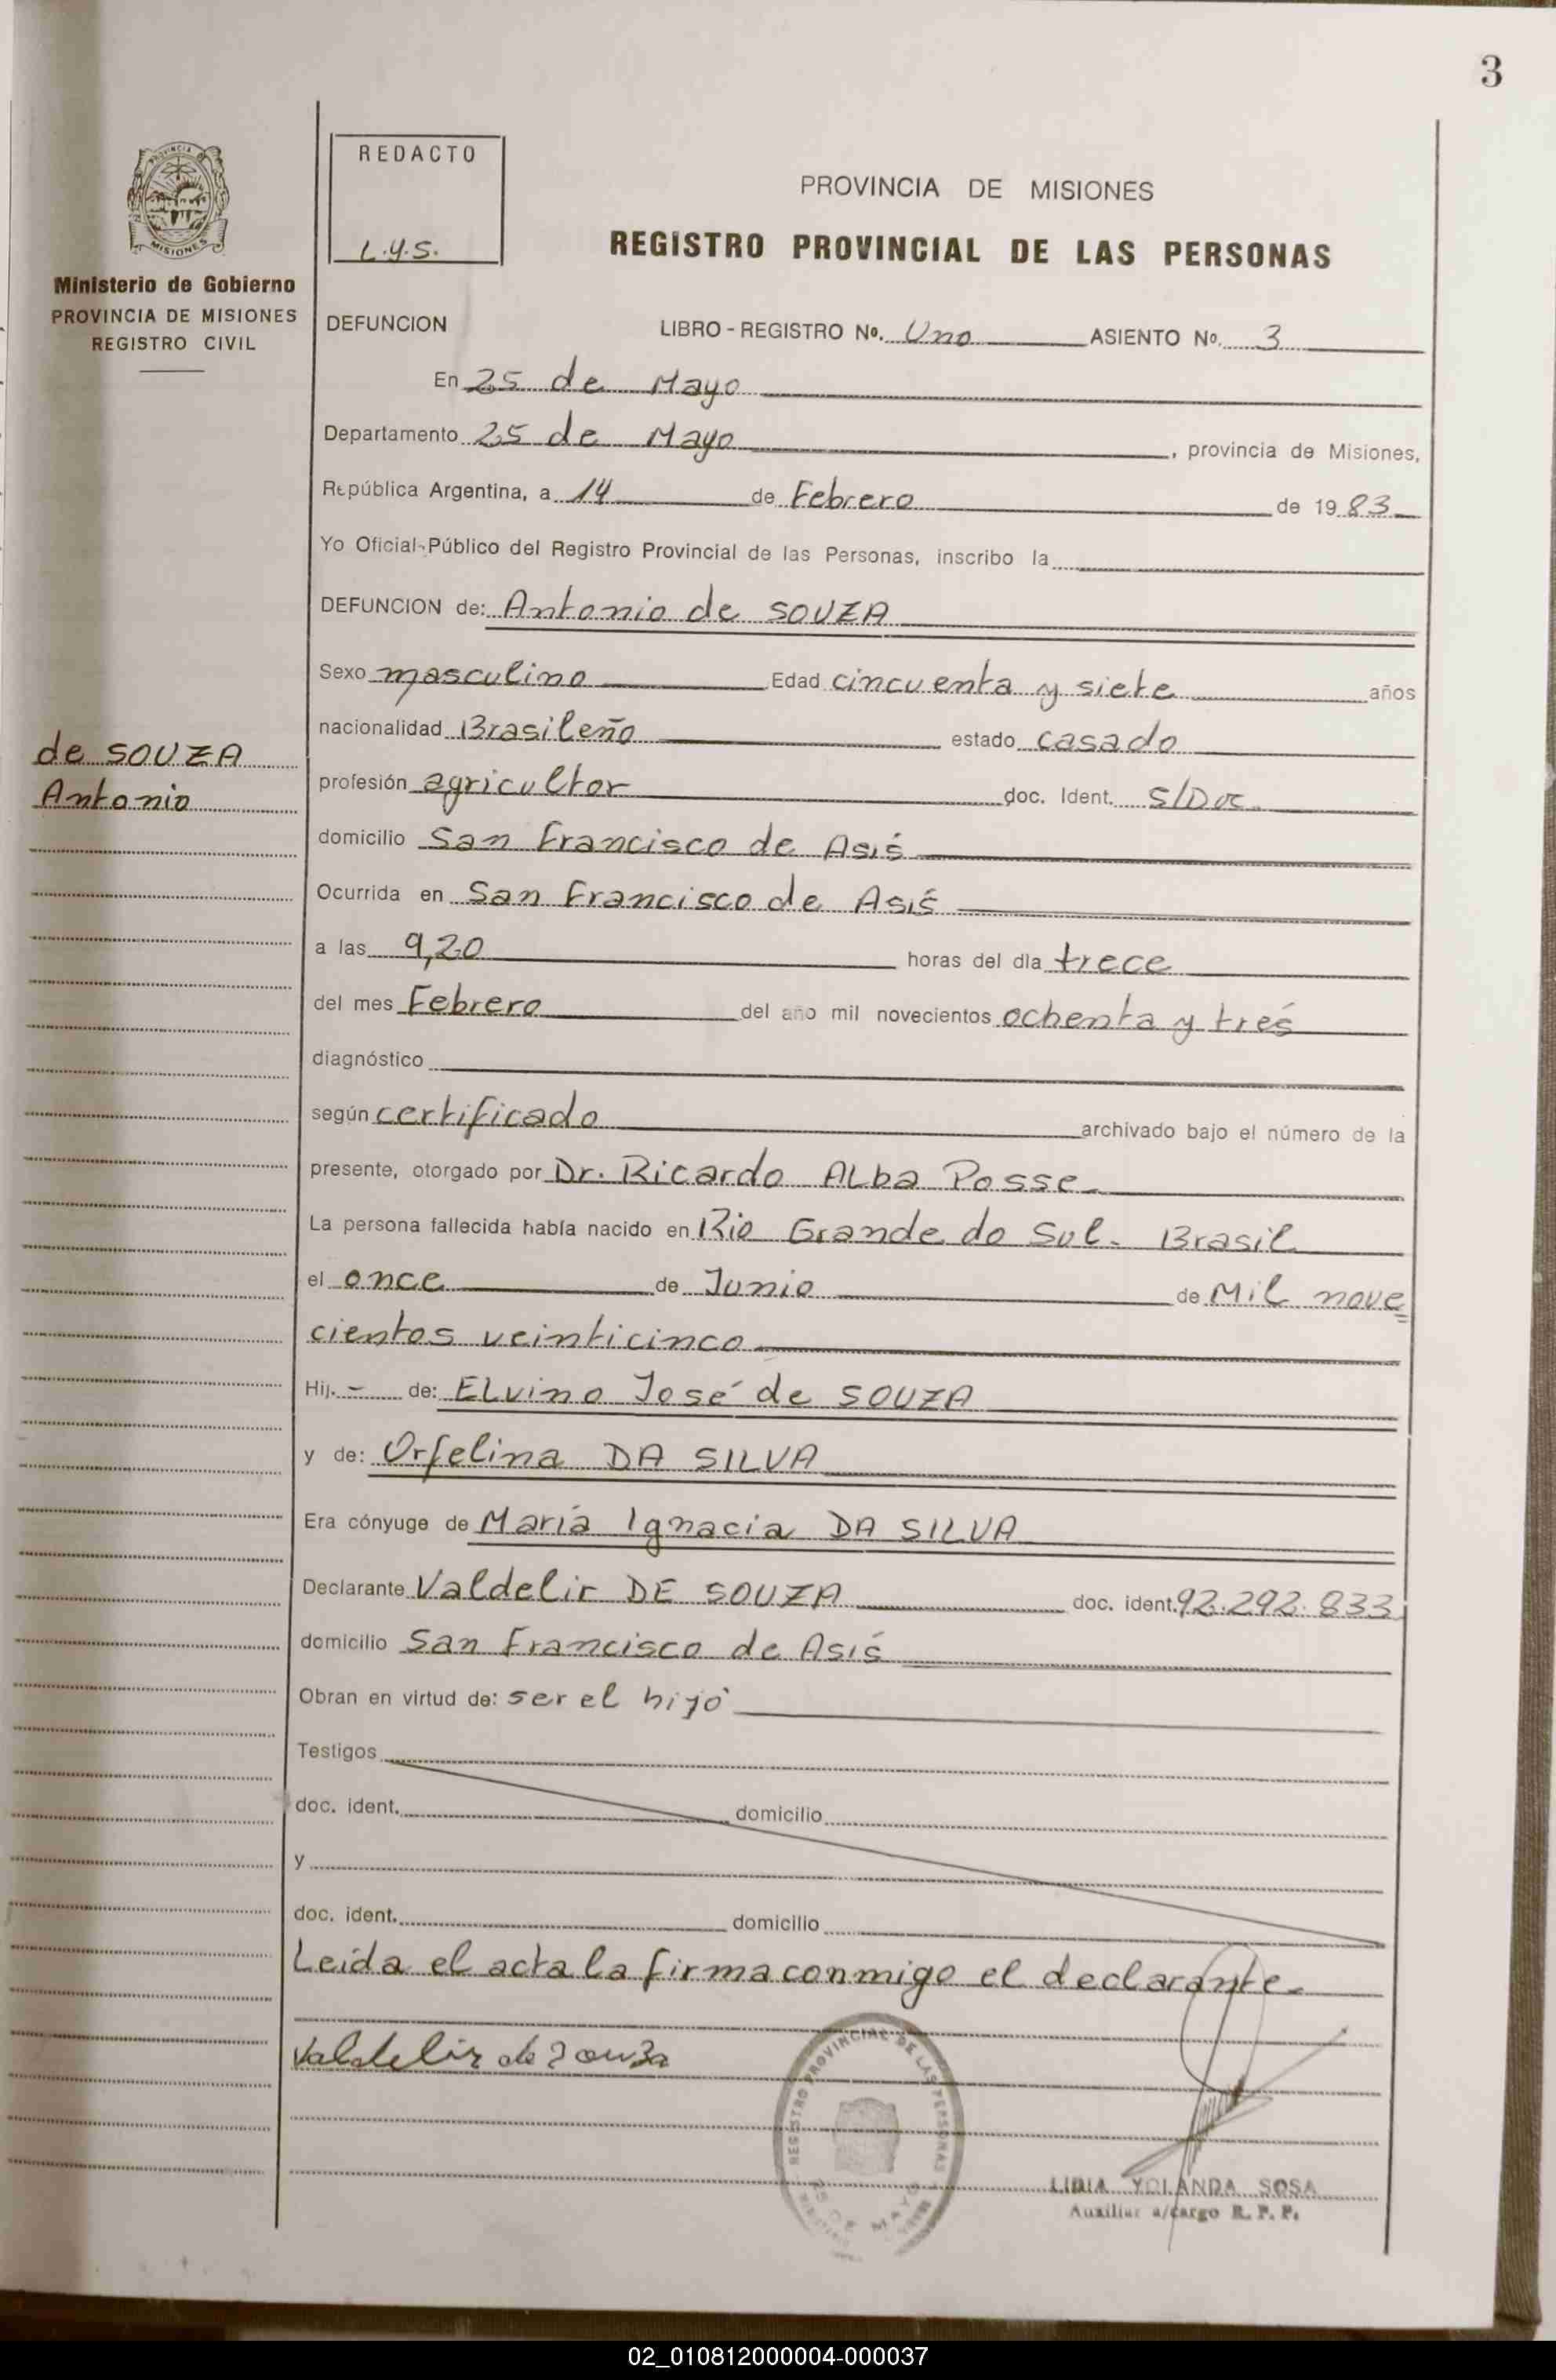 3
REDACTO
L.Y.S.
PROVINCIA DE MISIONES
REGISTRO PROVINCIAL DE LAS PERSONAS
MISIONES
Ministerio de Gobierno
PROVINCIA DE MISIONES
REGISTRO CIVIL
DEFUNCION LIBRO - REGISTRO Nº. Uno ASIENTO Nº. 3
En 25 de Mayo
Departamento 25 de Mayo, provincia de Misiones,
República Argentina, a 14 de Febrero de 1983
Yo Oficial Público del Registro Provincial de las Personas, inscribo la
DEFUNCION de: Antonio de SOUZA
Sexo masculino Edad cincuenta y siete años
nacionalidad Brasileño estado casado
de SOUZA
Antonio
profesión agricultor doc. Ident. S/Doc.
domicilio San Francisco de Asís
Ocurrida en San Francisco de Asís
a las 9,20 horas del día trece
del mes Febrero del año mil novecientos ochenta y tres
diagnóstico
según certificado archivado bajo el número de la
presente, otorgado por Dr. Ricardo ALba Posse
La persona fallecida había nacido en Rio Grande do Sul. Brasil
el once de Junio de Mil nove
cientos veinticinco
Hij. - de: ELvino José de SOUZA
y de: Orfelina DA SILVA
Era cónyuge de María Ignacia DA SILVA
Declarante Valdelir DE SOUZA doc. ident. 92.292.833
domicilio San Francisco de Asís
Obran en virtud de: ser el hijo
Testigos
doc. ident. domicilio
y
doc. ident. domicilio
Leída el acta la firma conmigo el declarante
Valdelir de Souza
REGISTRO PROVINCIAL DE LAS PERSONAS
25 DE MAYO
LIDIA YOLANDA SOSA
Auxiliar a/cargo R. P. P.
02_010812000004-000037